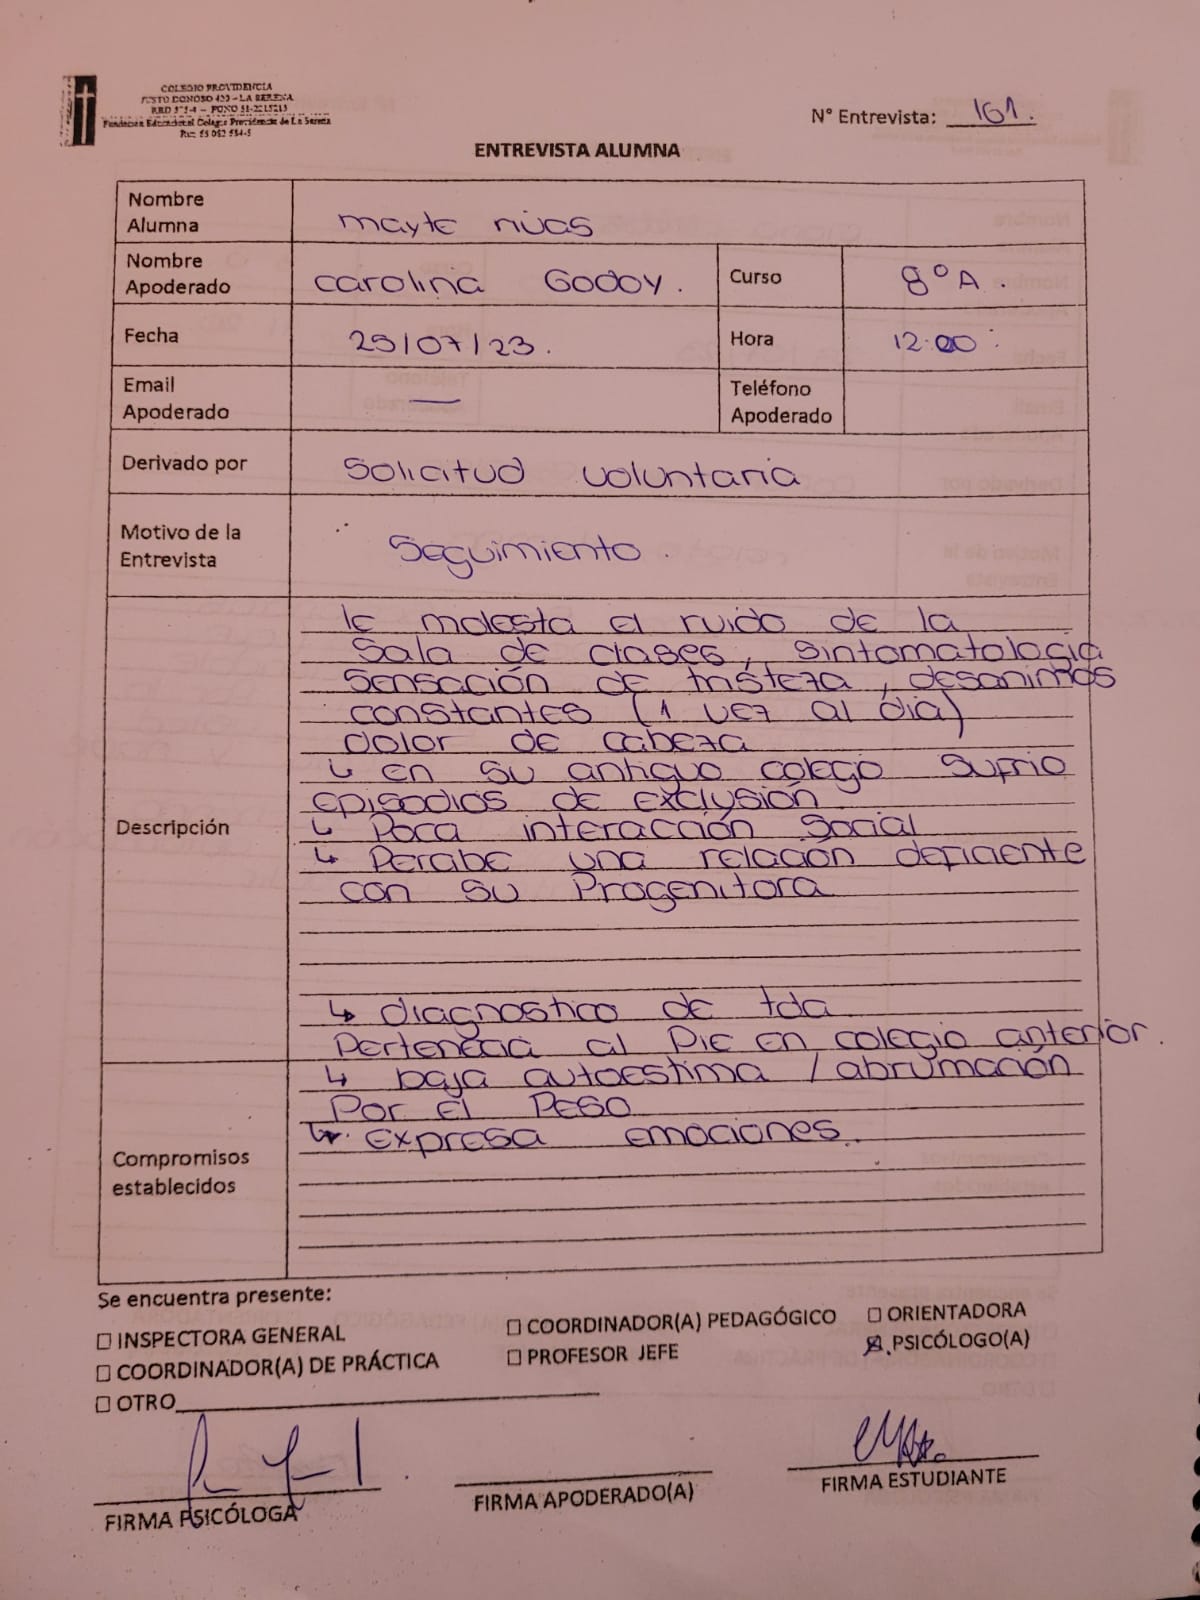 COLEGIO PROVIDENCIA
JUSTO DONOSO 420 - LA SERENA
RBD 575-4 - FONO 51-2215213
Fundación Educacional Colegio Providencia de La Serena
Rut: 65 052 534-5
N° Entrevista: 161.
ENTREVISTA ALUMNA
Nombre Alumna
mayte rivas
Nombre Apoderado
carolina Godoy.
Curso
8°A.
Fecha
25/07/23.
Hora
12:00
Email Apoderado
—
Teléfono Apoderado
Derivado por
Solicitud voluntaria
Motivo de la Entrevista
Seguimiento.
Descripción
le molesta el ruido de la
Sala de clases, sintomatologia
sensación de tristeza, desanimos
constantes (1 vez al dia)
dolor de cabeza
↳ en su antiguo colego sufrio
episodios de exclusión
↳ Poca interacción social
↳ Percibe una relacion deficiente
con su Progenitora
↳ diagnostico de tda
Pertenecia al Pie en colegio anterior.
↳ baja autoestima / abrumación
Por el Peso
↳ expresa emociones.
Compromisos establecidos
Se encuentra presente:
☐ INSPECTORA GENERAL
☐ COORDINADOR(A) PEDAGÓGICO
☐ ORIENTADORA
☐ COORDINADOR(A) DE PRÁCTICA
☐ PROFESOR JEFE
☒ PSICÓLOGO(A)
☐ OTRO
FIRMA PSICÓLOGA
FIRMA APODERADO(A)
FIRMA ESTUDIANTE